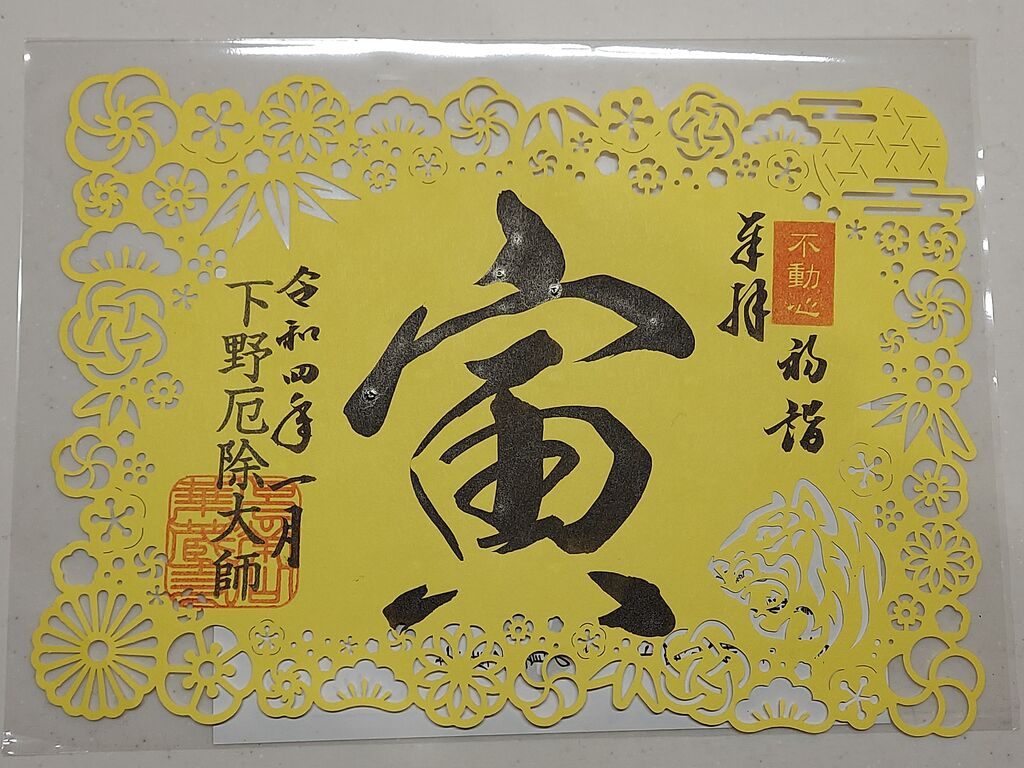 奉拝
不動心
初詣
寅
令和四年一月
下野厄除大師